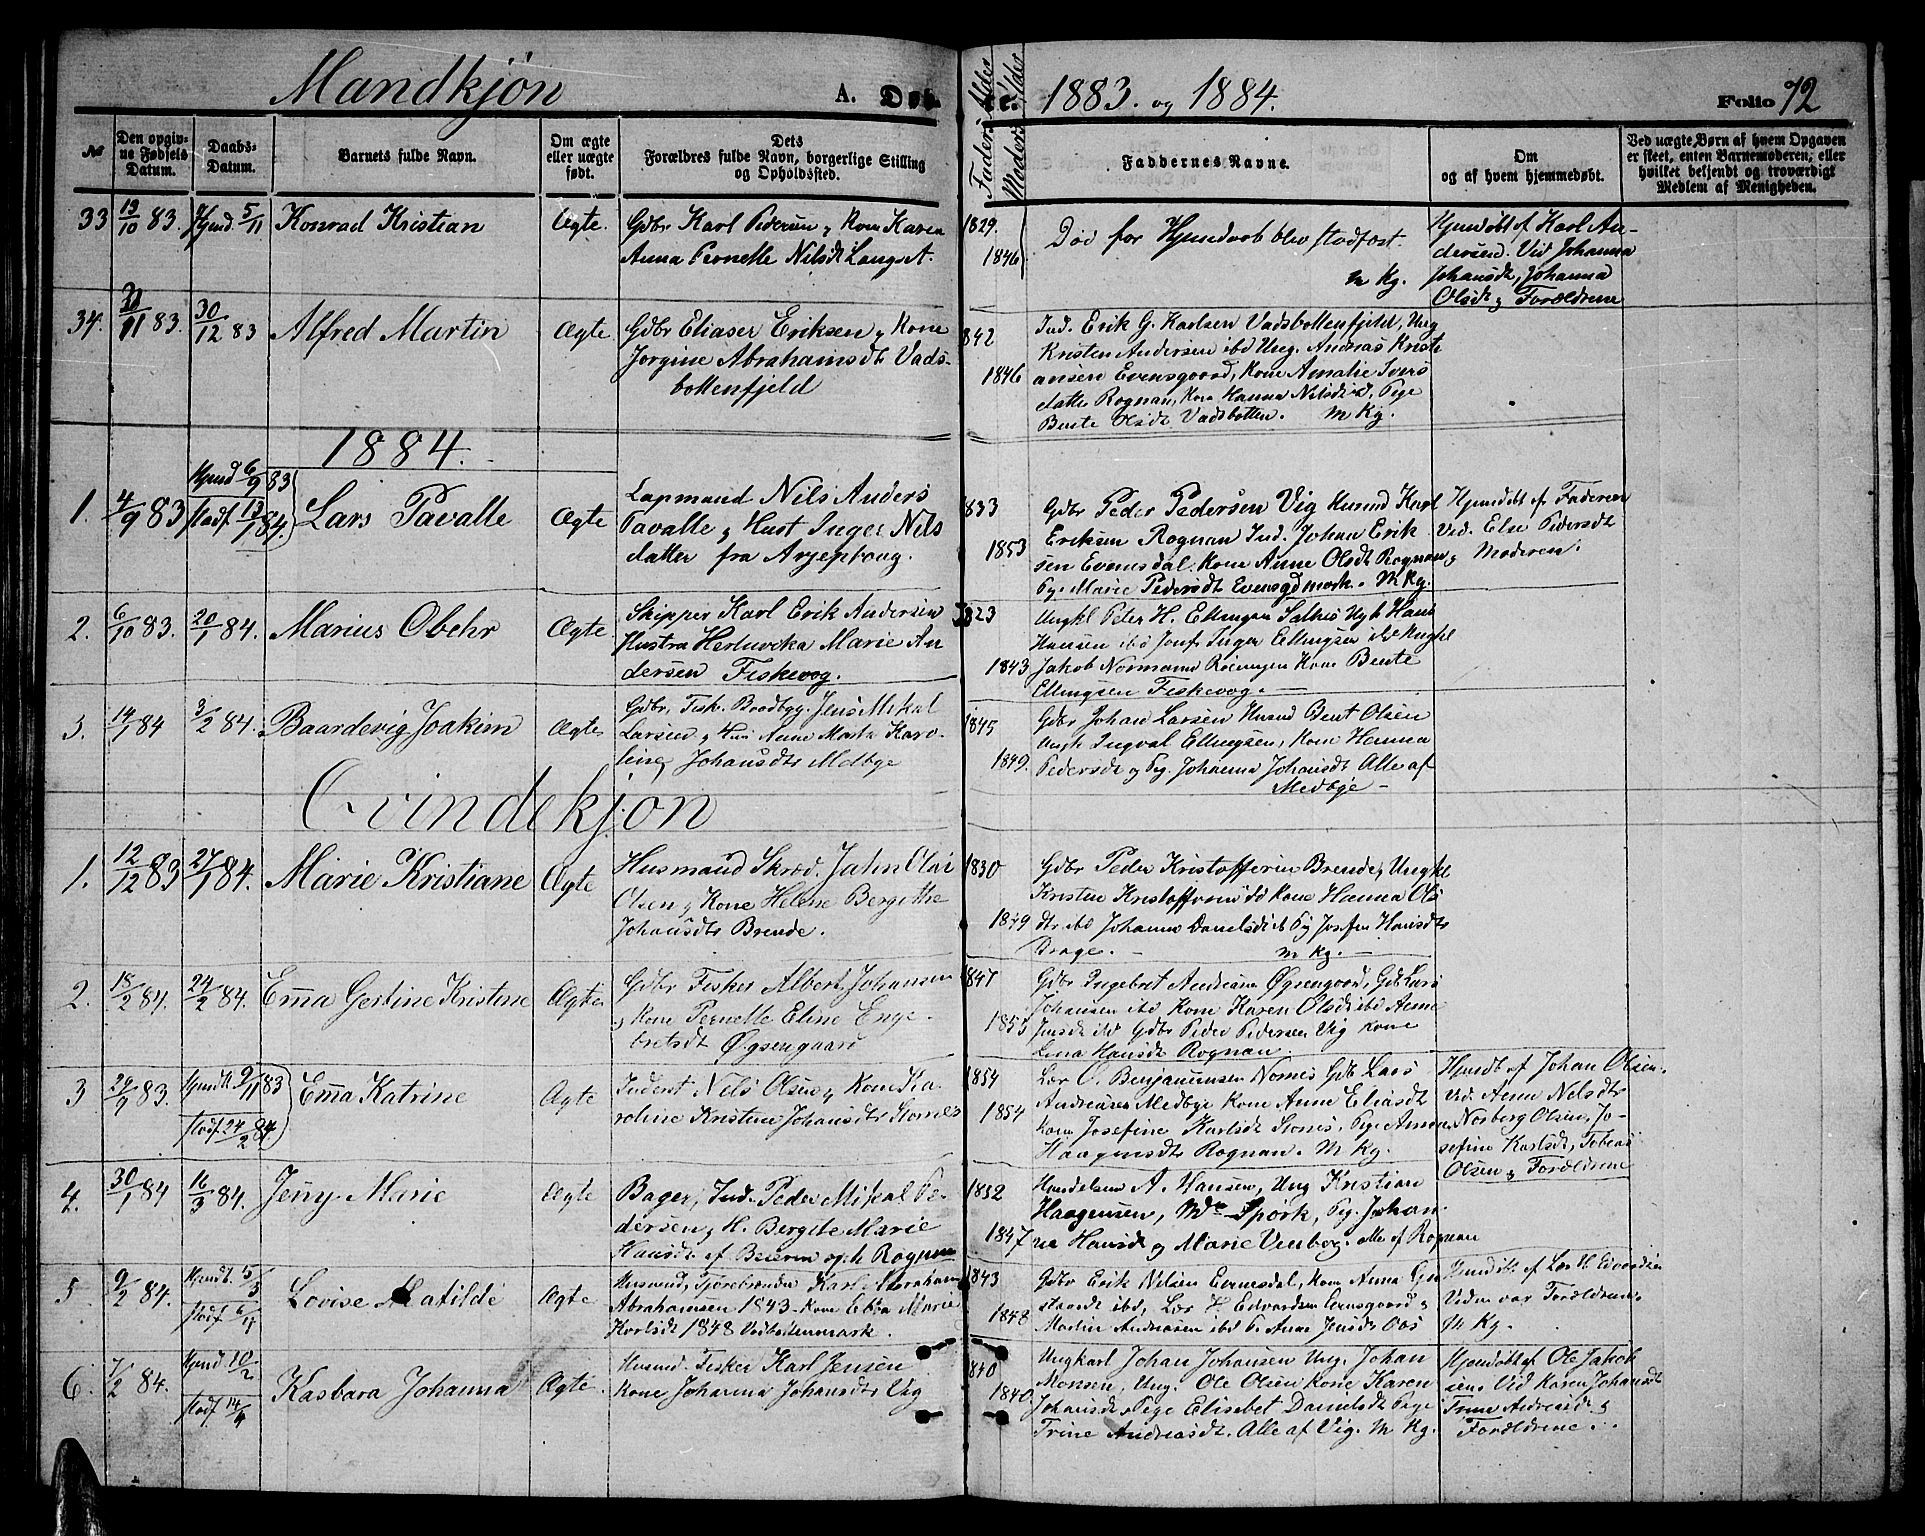 Mandkjøn
A.
1883. og 1884.
Folio 72
Faders Alder
Moders Alder
No
Den opgiv-
ne Fødsels
Datum.
Daabs-
Datum.
Barnets fulde Navn.
Om ægte
eller uægte
født.
Dets
Forældres fulde Navn, borgerlige Stilling
og Opholdssted.
Faddernes Navne.
Om
og af hvem hjemmedøbt.
Ved uægte Børn af hvem Opgaven
er skeet, enten Barnemoderen, eller
hvilket bekjendt og troværdigt
Medlem af Menigheden.
33 19/10 83. Hjmd 5/11 Konrad Kristian Ægte.
Gdbr Karl Pedersen og Kone Karen
Anna Pernelle Nilsdt Langs A.
1829.
1846
Død før Hjemdaab blev stadfæst.
m kg.
Hjemdøbt af Karl An-
dersen. Vid Johanna
Johansdt, Johanna
Olsdt og Forældrene
34. /11 83. 30/12 83 Alfred Martin Ægte
Gdbr Eliaser Eriksen og Kone
Jorgine Abrahamsdtr Vads-
bottenfjeld
842
1846
Ind. Erik G. Karlsen Vadsbottenfjeld, Ung
Kristen Andersen ibd Ung. Andreas Kristi
ansen Evensgaard, Kone Amalie Ivers
datter Rognan, Kone Hanna Nilsdt ibd, Pige
Bente Olsdt Vadsbotten. m Kg.
1884.
1. 4/9 83 Hjmd 6/9 83
stadf 13/1 84. Lars Pavalle Ægte
Lapmand Nils Anders
Pavalle og Hust Inger Nils
datter fra Arjeploug.
833
1853
Gdbr Peder Pedersen Vig Husmd Karl
Eriksen Rognan Ind. Johan Erik
sen Evensdal. Kone Anne Olsdt Rognan
Pige Marie Pedersdt Evensgdmark. M Kg.
Hjemdøbt af Faderen
Vid. Else Pedersdt
og Moderen.
2. 6/10 83. 20/1 84. Marius Obehr Ægte
Skipper Karl Erik Andersen
Hustru Hedveka Marie An
dersen Fiskevog.
1823
1843
Ungkl Peter H. Ellingsen Saltnes Ugk Hans
Hansen ibd Jomf Inger Ellingsen ibd Ungkl
Jakob Normann Kone Bente
Ellingsen Fiskevog.
3. 14/1 84 3/2 84. Baardevig Joakim Ægte
Gdbr Fisk. Baadbyg. Jens Mikal
Larsen og Kone Anne Marta Karo-
line Johansdtr Medbye
1845
1849.
Gdbr Johan Larsen Husmd Bent Olsen
Ungk Ingval Ellingsen, Kone Hanna
Pedersdt og Pg. Johanna Johansdt Alle af
Medbye
Qvindekjøn
1. 12/12 83 27/1 84. Marie Kristiane Ægte
Husmand Skræd. John Olai
Olsen og Kone Helene Bergitte
Johansdtr Brende.
1830
1849
Gdbr Peder Kristoffersen Brende, Ungkl
Kristen Kristoffersen ibd Kone Hanna Ols
dtr ibd Johanna Danelsdt ibd Pg Josefen Hansdtr
Drage. m kg.
2. 15/2 84. 24/2 84. Em̅a Gertine Kristine Ægte
Gdbr Fisker Albert Johansen
og Kone Pernelle Eline Enge-
bretsdt Øgsengaard
1847
1853
Gdbr Ingebret Andreasen Øgsengaard, Gdb Lars
Johansen ibd Kone Karen Olsdt ibd Anne
Jensdt ibd Gdbr Peder Pedersen Vig Kone
Lena Hansdt Rognan
3 29/9 83. Hjmdt 9/11 83
stadf 24/2 84. Em̅a Katrine Ægte
Inderst Nils Olsen og Kone Ka
roline Kristine Johansdtr Stones
1854
1854
Lær O. Benjaminsen Nornes Gdb Lars
Andreasen Medbye Kone Anne Eliasdt
Kone Josefine Karlsdt Stones, Pige Anna
Haagensdtr Rognan. M Kg.
Hjmdt af Johan Olsen.
Vid. Anna Nilsdtr
Norberg Olsen, Jo-
sefine Karlsdt, Tobias
Olsen og Forældrene
4. 30/1 84 16/3 84. Jen̅y Marie Ægte
Bager, Ind. Peder Mikal Pe-
dersen og H. Bergite Marie
Hansdt af Beiern oph Rognan
1852
1847
Handelsm A. Hansen, Ung Kristian
Haagensen, Md Spörk, Pg. Johan
ne Hansdt og Marie Venbog. alle af Rognan
5. 9/2 84. Hjmdt. 5/3
stadf 6/4 Lovise Matilde Ægte
Husmd, Tjærebrænder Karl Abraham
Abrahamsen 1843 Kone Ebba Marie
Karlsdt 1848 Vadbottenmark.
1843
1848
Gdbr Erik Nilsen Evensdal, Kone Anna Gu
stavsdt ibd, Lær H Edvardsen Evensgaard og
Martin Andreasen ibd P. Anne Jensdtr
Hjemdøbt. af Lær H Edvardsen
Vidne var Forældrene
M Kg.
6. 7/2 84. Hjmd 10/2
stadf 14/4 Kasbara Johanna Ægte
Husmd. Fisker Karl Jensen
Kone Johanna Johansdtr Vig
1840
1840.
Ungkarl Johan Johansen Ung. Johan
Monsen, Ung. Ole Olsen Kone Karen
Johansdt, Pige Elisebet Danielsdt Pige
Trine Andreasdt. Alle af Vig. M Kg.
Hjemdøbt af Ole Jakob
sen. Vid Karen Johansdt
Trine Andreasdt og
Forældrene.